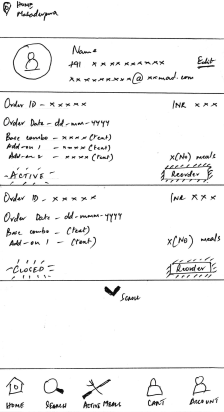 Home
Mahadevpura
Name
+91 xxxxxxxxxx
Edit
xxxxxxxxx@xxmail.com
Order ID - xxxxx
INR xxx
Order Date - dd-mmm-yyyy
Base combo - xxxx (Text)
Add-on 1 - xxxx (Text)
Add-on 2 - xxxx (Text)
x(No) meals
- ACTIVE -
Reorder
Order ID - xxxxx
INR xxx
Order Date - dd-mmm-yyyy
Base combo - (Text)
Add-on 1 - (Text)
x(No) meals
- CLOSED -
Reorder
SCROLL
HOME
SEARCH
ACTIVE MEALS
CART
ACCOUNT